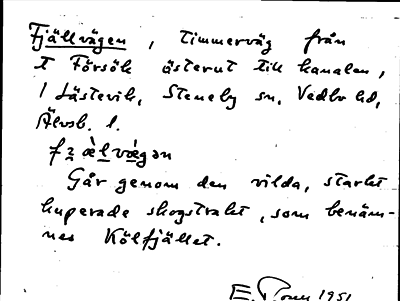 Fjällvägen, timmerväg från
T Försök österut till kanalen,
i Lästevik, Steneby sn, Vedbo hd,
Älvsb. l.
Går genom den vilda, starkt
kuperade skogstrakt, som benäm-
nes Kölfjället.
E. 1951